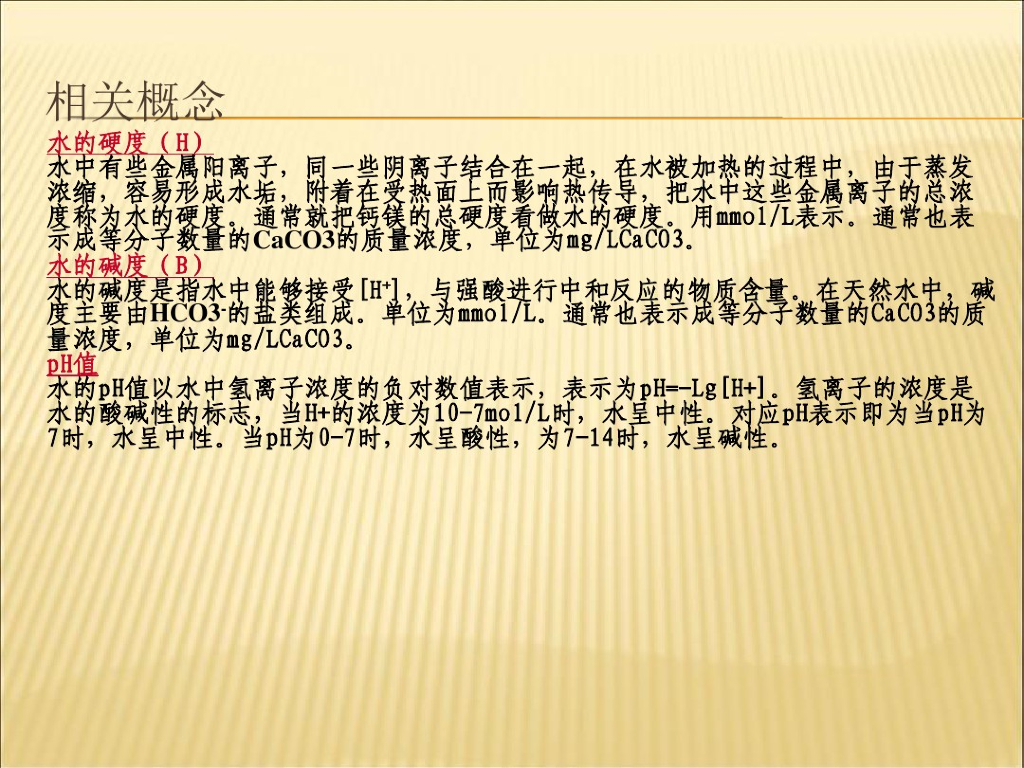 相关概念
水的硬度（H）
水中有些金属阳离子，同一些阴离子结合在一起，在水被加热的过程中，由于蒸发
浓缩，容易形成水垢，附着在受热面上而影响热传导，把水中这些金属离子的总浓
度称为水的硬度。通常就把钙镁的总硬度看做水的硬度。用mmol/L表示。通常也表
示成等分子数量的CaCO3的质量浓度，单位为mg/LCaCO3。
水的碱度（B）
水的碱度是指水中能够接受[H⁺]，与强酸进行中和反应的物质含量。在天然水中，碱
度主要由HCO3⁻的盐类组成。单位为mmol/L。通常也表示成等分子数量的CaCO3的质
量浓度，单位为mg/LCaCO3。
pH值
水的pH值以水中氢离子浓度的负对数值表示，表示为pH=-Lg[H+]。氢离子的浓度是
水的酸碱性的标志，当H+的浓度为10-7mol/L时，水呈中性。对应pH表示即为当pH为
7时，水呈中性。当pH为0-7时，水呈酸性，为7-14时，水呈碱性。